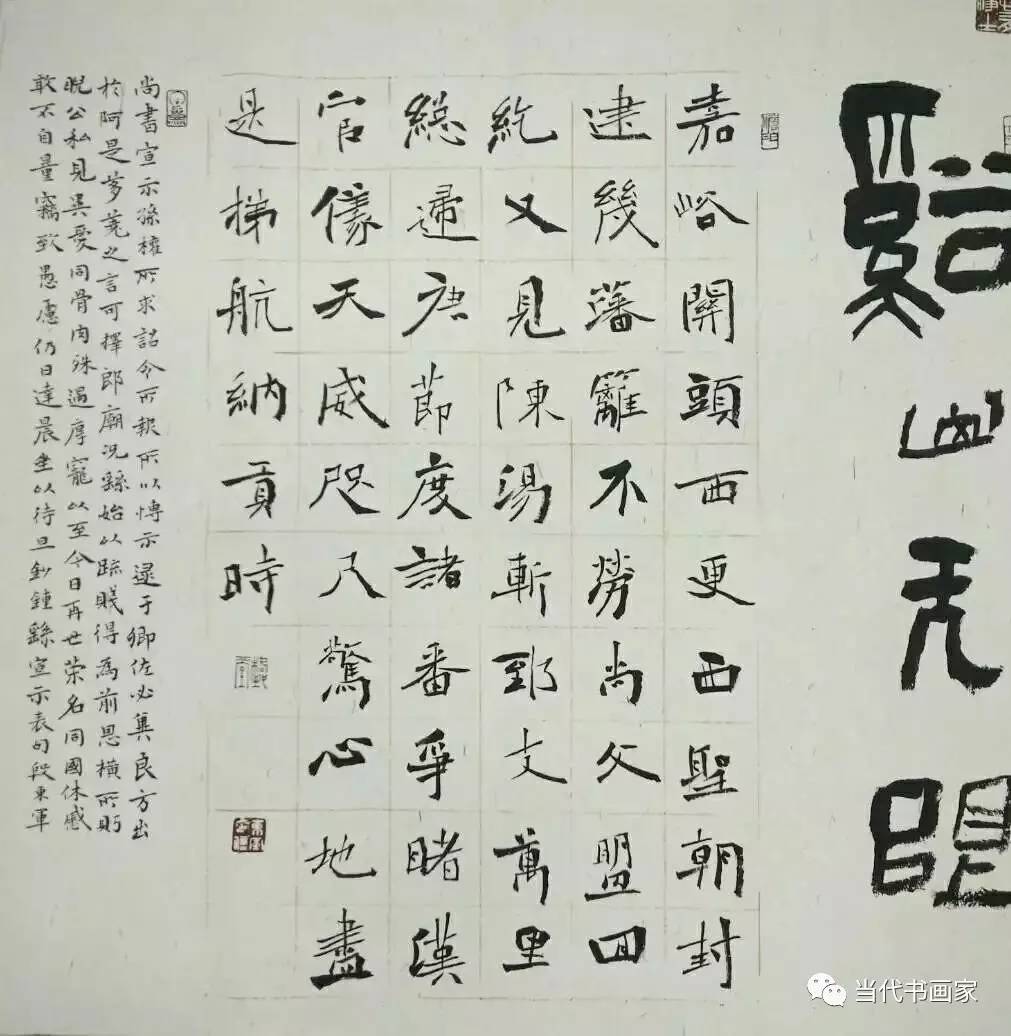 谿山无
嘉峪關頭西更西聖朝封
建幾藩籬不勞尚父盟回
紇又見陳湯斬郅支萬里
總歸唐節度諸番爭睹漢
官儀天威咫尺驚心地盡
是梯航納貢時
尚書宣示孫權所求詔令所報所以博示逮于卿佐必冀良方出
於阿是芻蕘之言可擇郎廟況繇始以疏賤得為前恩橫所眄
睨公私見異愛同骨肉殊遇厚寵以至今日再世榮名同國休慼
敢不自量竊致愚慮仍日達晨坐以待旦鈔鍾繇宣示表句段東軍
当代书画家